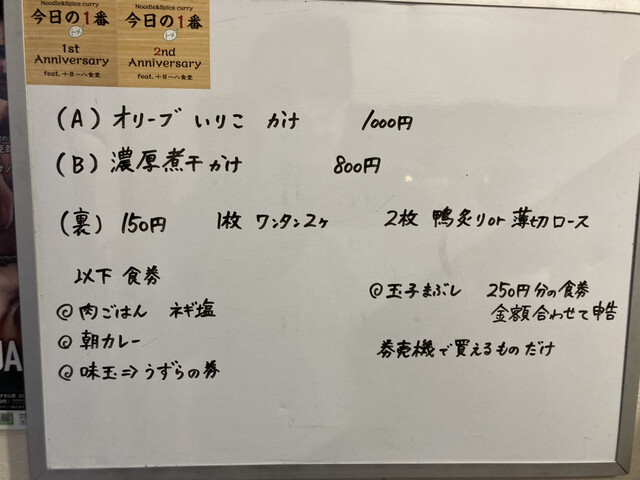 Noodle&Spice curry
今日の1番
1st
Anniversary
feat. 十日一八食堂
Noodle&Spice curry
今日の1番
2nd
Anniversary
feat. 十日一八食堂
(A) オリーブ いりこ かけ 1000円
(B) 濃厚煮干かけ 800円
(裏) 150円 1枚 ワンタン2ケ 2枚 鴨炙りor薄切ロース
以下 食券
@肉ごはん ネギ塩
@朝カレー
@味玉⇒うずらの券
@玉子まぶし 250円分の食券
金額合わせて申告
券売機で買えるものだけ